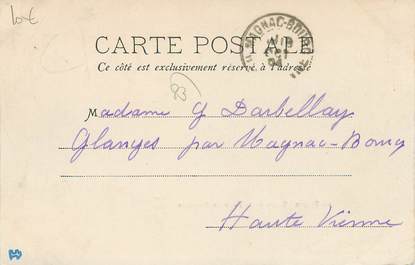 lot
CARTE POSTALE
MAGNAC-BOURG
Ce côté est exclusivement réservé à l'adresse
93
Madame G Darbellay
Glanges par Magnac-Bourg
Haute Vienne